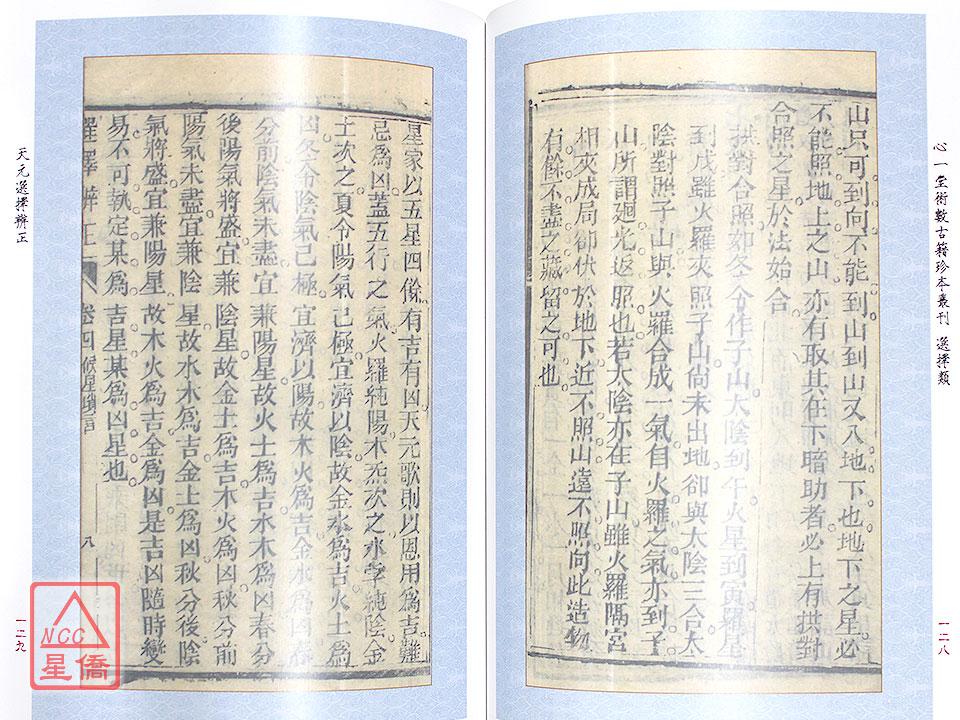 心一堂術數古籍珍本叢刊 選擇類
一二八
山只可到向不能到山到山又入地下也地下之星必
不能照地上之山亦有取其在下暗助者必上有拱對
合照之星於法始合
拱對合照如冬令作子山太陰到午火星到寅羅星
到戌雖火羅夾照子山尚未出地卻與太陰三合太
陰對照子山與火羅合成一氣自火羅之氣亦到子
山所謂迴光返照也若太陰亦在子山雖火羅隔宮
相夾成局卻伏於地下近不照山遠不照向此造物
有餘不盡之藏留之可也
星家以五星四餘有吉有凶天元歌則以恩用為吉難
忌為凶蓋五行之氣火羅純陽木炁次之水孛純陰金
土次之夏令陽氣已極宜濟以陰故金水為吉火土為
凶冬令陰氣已極宜濟以陽故木火為吉金水為凶春
分前陰氣未盡宜兼陽星故火土為吉水木為凶春分
後陽氣將盛宜兼陰星故金土為吉木火為凶秋分前
陽氣未盡宜兼陰星故水木為吉金土為凶秋分後陰
氣將盛宜兼陽星故木火為吉金為凶是吉凶隨時變
易不可執定某為吉星某為凶星也
選擇辨正 卷四 候星瑣言 八
天元選擇辨正
一二九
NCC
星僑